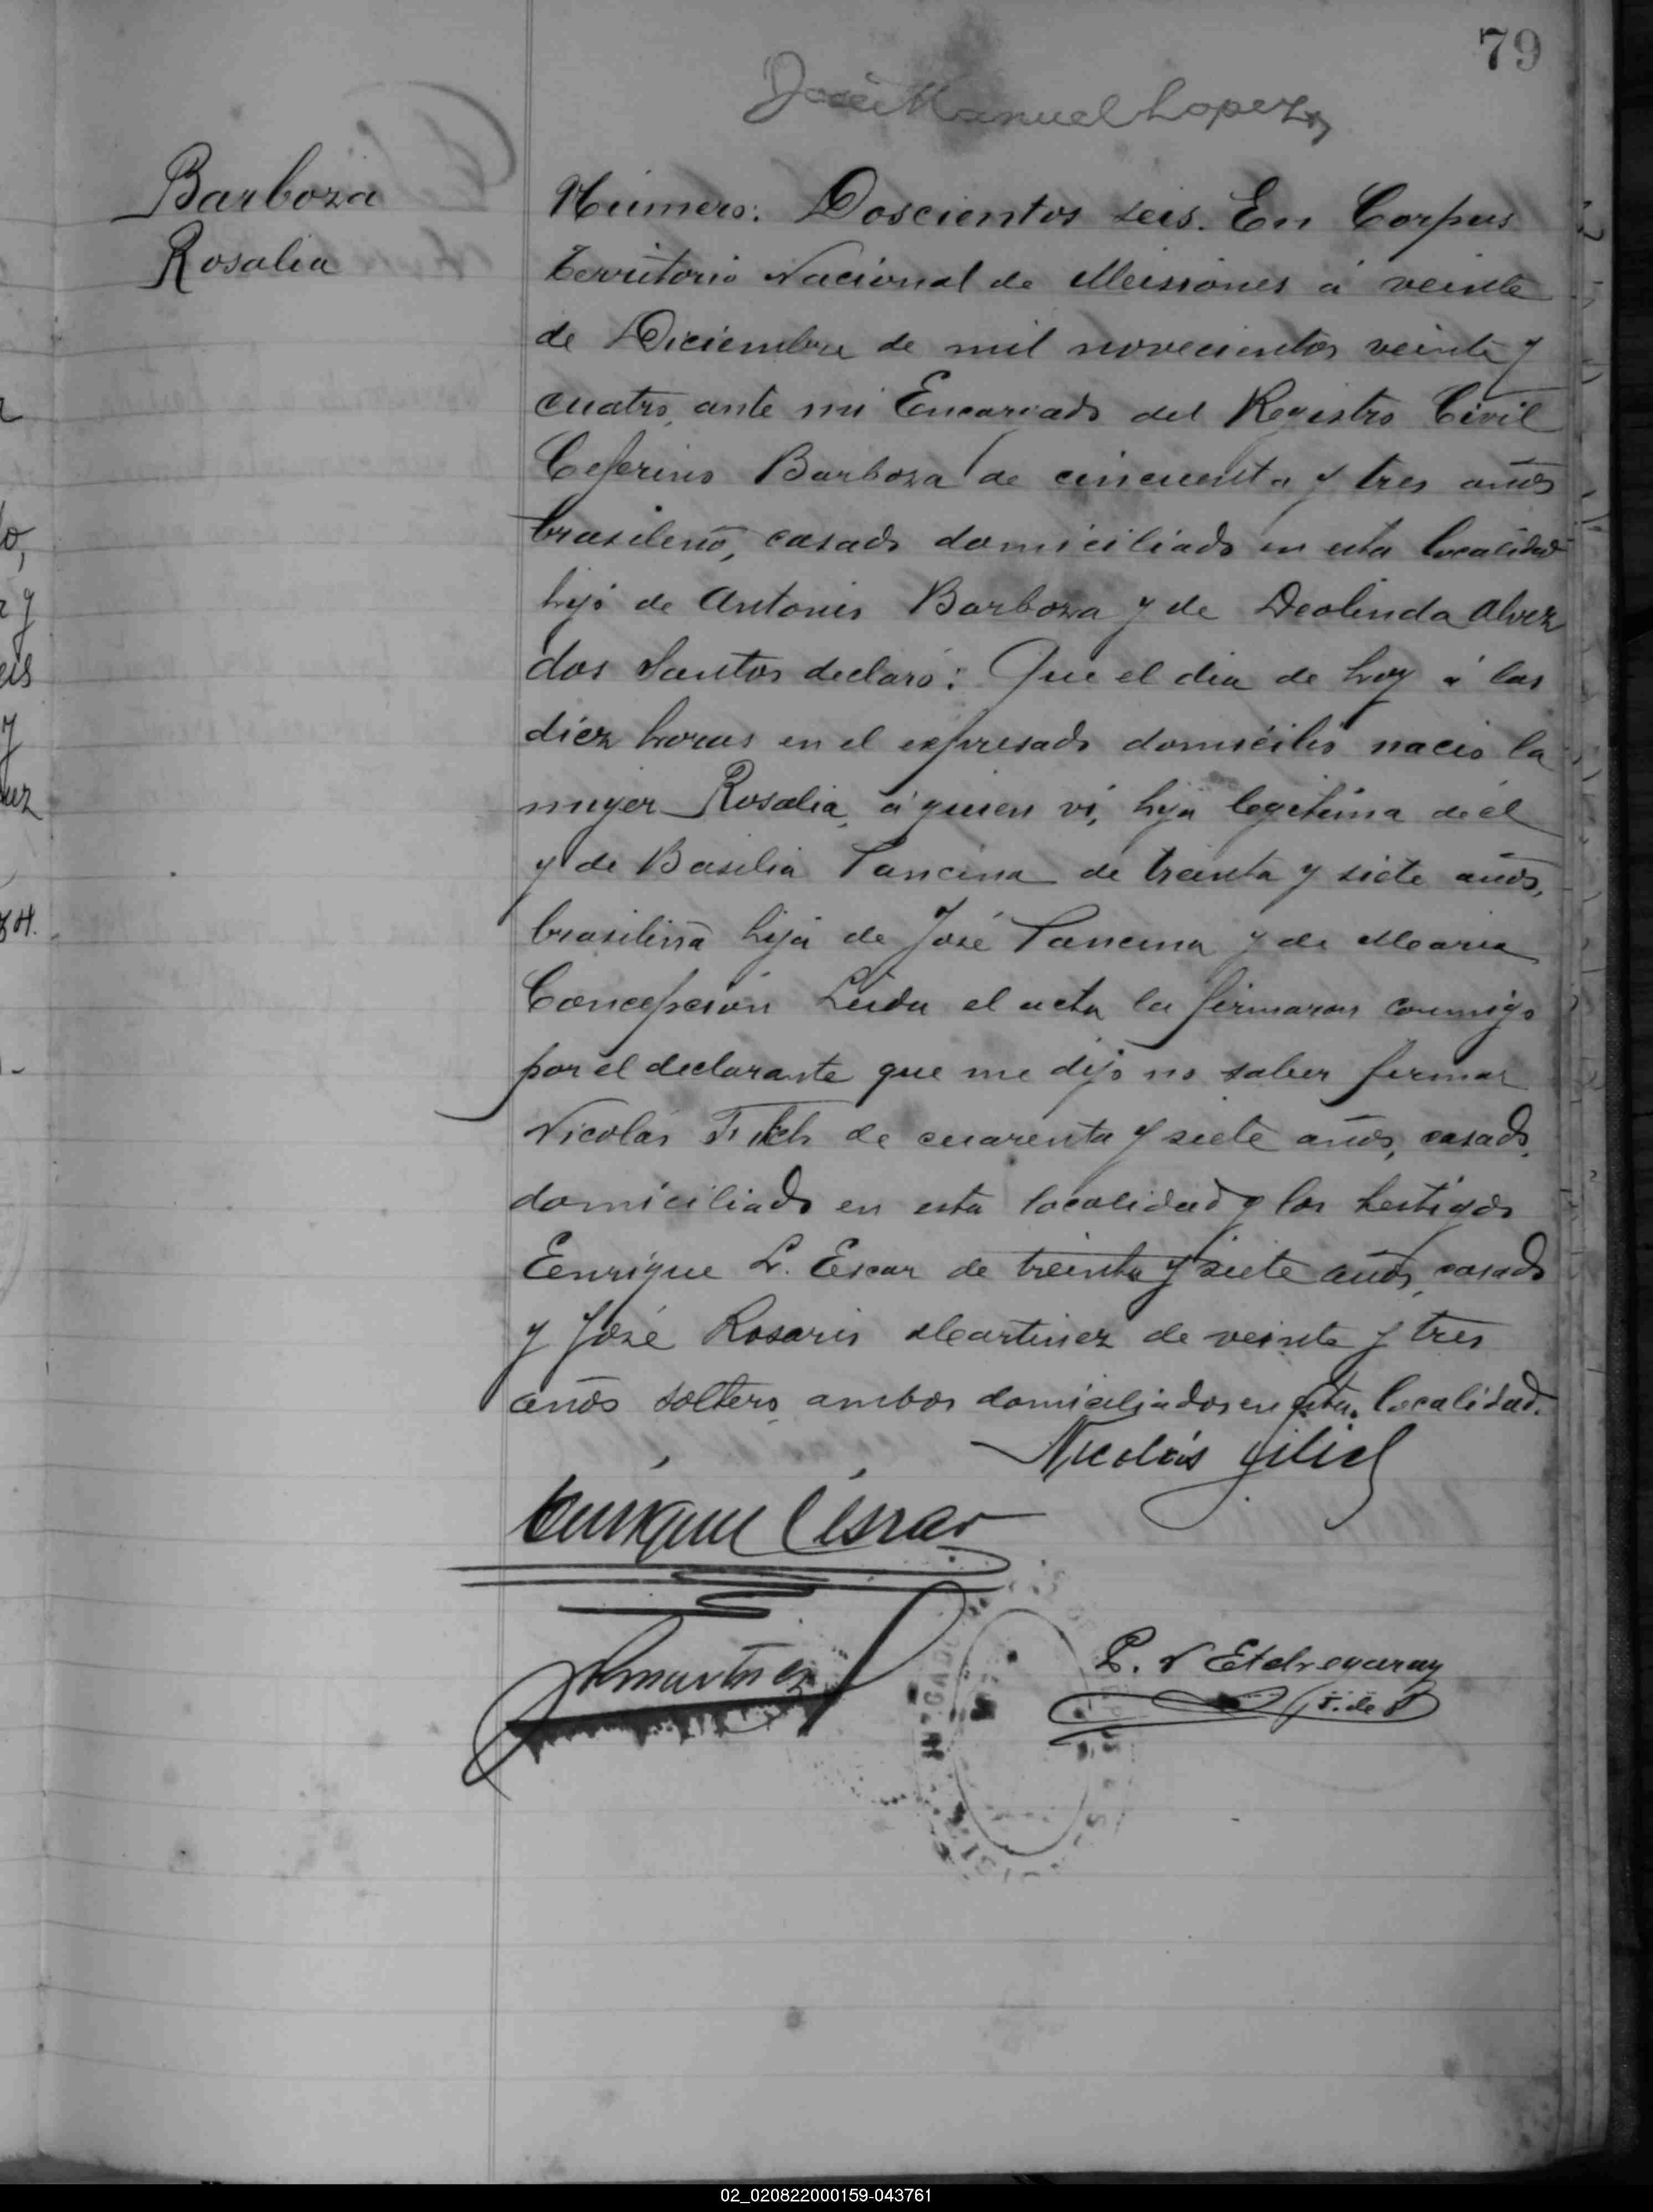 79
José Manuel Lopez
Barboza
Rosalia
Número: Doscientos seis. En Corpus
Territorio Nacional de Misiones á veinte
de Diciembre de mil novecientos veinte y
cuatro, ante mi Encargado del Registro Civil
Ceferino Barboza de cincuenta y tres años
brasileño, casado domiciliado en esta localidad
hijo de Antonio Barboza y de Deolinda Alvez
dos Santos declaró: Que el dia de hoy á las
diez horas en el expresado domicilio nacio la
mujer Rosalia, á quien vi, hija legitima de él
y de Basilia Pancina de treinta y siete años,
brasileña hija de José Pancina y de Maria
Concepcion Leida el acta la firmaron conmigo
por el declarante que me dijo no saber firmar
Nicolás de cuarenta y siete años, casado,
domiciliado en esta localidad y los testigos
Eenrique L. Escar de treinta y siete años, casado
y José Rosario Martinez de veinte y tres
años soltero, ambos domiciliados en esta localidad.
Nicolás
Enrique
Martinez
P. N Etchegaray
J. de P
02_020822000159-043761